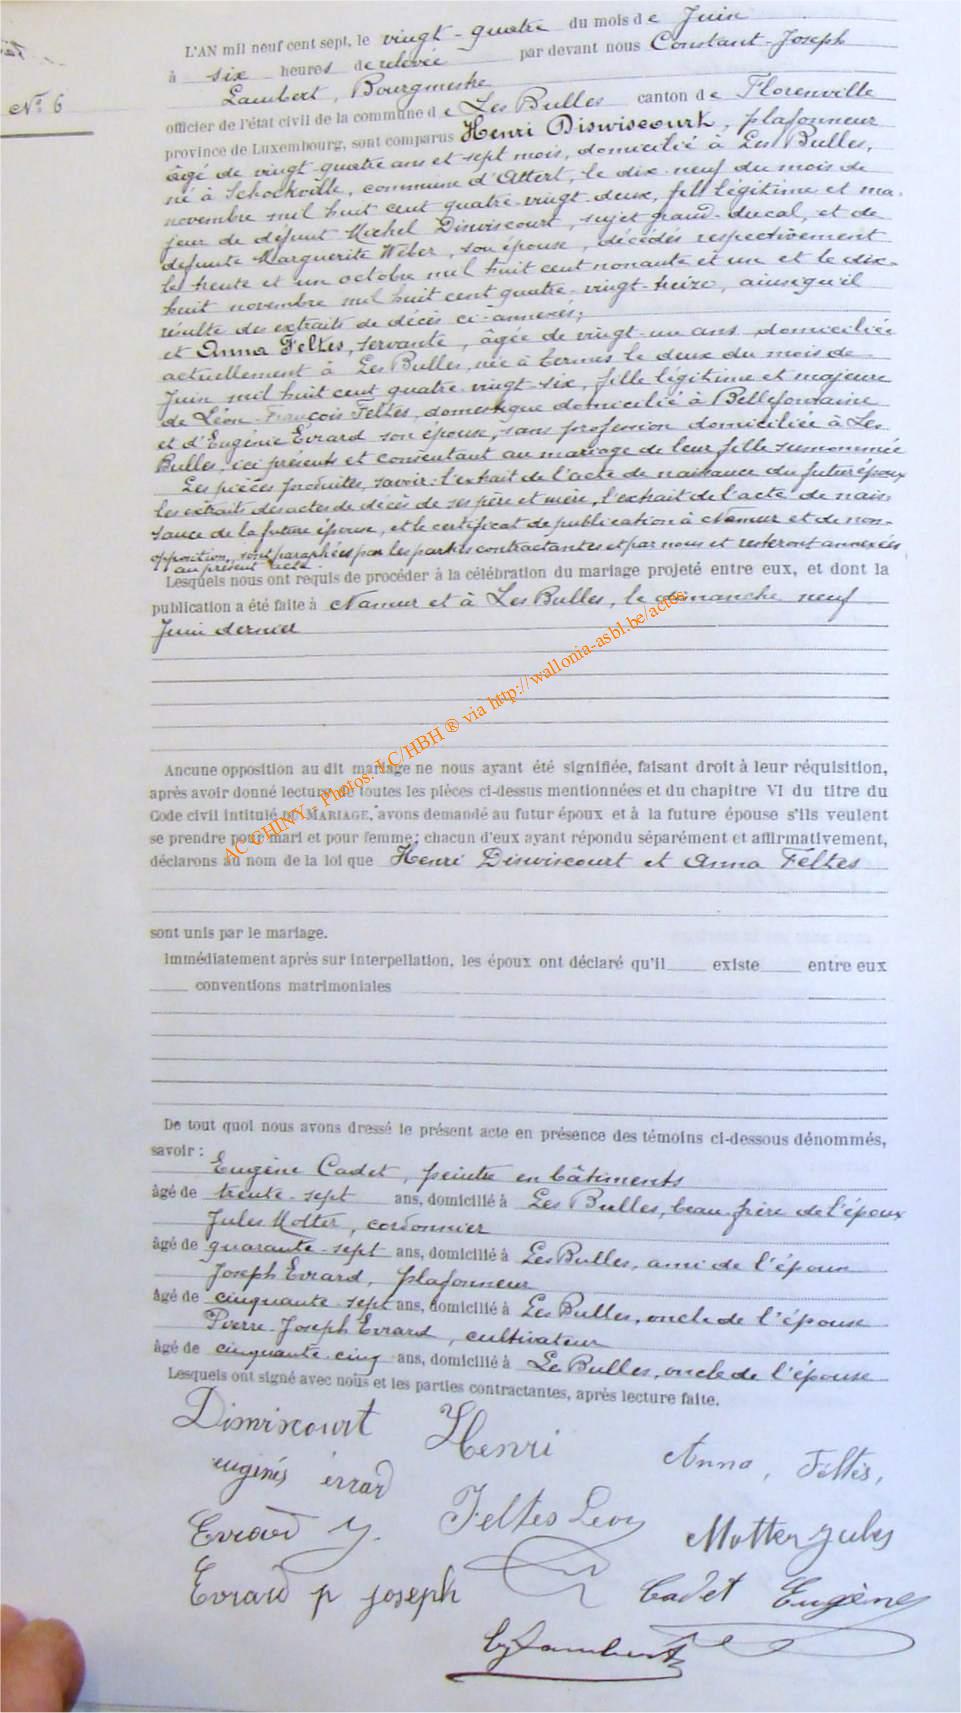 L'AN mil neuf cent sept, le vingt-quatre du mois de Juin
à six heures de relevée par devant nous Constant-Joseph
Lambert, Bourgmestre
officier de l'état civil de la commune de Les Bulles canton de Florenville
N° 6
province de Luxembourg, sont comparus Henri Diswiscourt, plafonneur
âgé de vingt-quatre ans et sept mois, domicilié à Les Bulles,
né à Schockville, commune d'Attert, le dix-neuf du mois de
novembre mil huit cent quatre-vingt-deux, fils légitime et ma-
jeur de défunt Michel Diswiscourt, sujet grand-ducal, et de
défunte Marguerite Wéber, son épouse, décédés respectivement
le trente et un octobre mil huit cent nonante et un et le dix-
huit novembre mil huit cent quatre-vingt-treize, ainsi qu'il
résulte des extraits de décès ci-annexés;
et Anna Feltes, servante, âgée de vingt-un ans, domiciliée
actuellement à Les Bulles, née à Termes le deux du mois de
Juin mil huit cent quatre-vingt-six, fille légitime et majeure
de Léon-François Feltes, domestique domicilié à Bellefontaine
et d'Eugénie Evrard son épouse, sans profession domiciliée à Les
Bulles, ici présents et consentant au mariage de leur fille susnommée
Les pièces produites, savoir: l'extrait de l'acte de naissance du futur époux
les extraits des actes de décès de ses père et mère, l'extrait de l'acte de nais
sance de la future épouse, et le certificat de publication à Namur et de non-
opposition, sont paraphées par les parties contractantes et par nous et resteront annexées
au présent acte.
Lesquels nous ont requis de procéder à la célébration du mariage projeté entre eux, et dont la
publication a été faite à Namur et à Les Bulles, le dimanche neuf
Juin dernier
Aucune opposition au dit mariage ne nous ayant été signifiée, faisant droit à leur réquisition,
après avoir donné lecture de toutes les pièces ci-dessus mentionnées et du chapitre VI du titre du
Code civil intitulé DU MARIAGE, avons demandé au futur époux et à la future épouse s'ils veulent
se prendre pour mari et pour femme; chacun d'eux ayant répondu séparément et affirmativement,
déclarons au nom de la loi que Henri Diswiscourt et Anna Feltes
AC CHINY - Photos: LC/HBH ® via http://wallonia-asbl.be/actes
sont unis par le mariage.
Immédiatement après sur interpellation, les époux ont déclaré qu'il existe entre eux
conventions matrimoniales
De tout quoi nous avons dressé le présent acte en présence des témoins ci-dessous dénommés,
savoir :
Eugène Cadet, peintre en bâtiments
âgé de trente-sept ans, domicilié à Les Bulles, beau-frère de l'époux
Jules Motter, cordonnier
âgé de quarante-sept ans, domicilié à Les Bulles, ami de l'époux
Joseph Evrard, plafonneur
âgé de cinquante-sept ans, domicilié à Les Bulles, oncle de l'épouse
Pierre-Joseph Evrard, cultivateur
âgé de cinquante-cinq ans, domicilié à Les Bulles, oncle de l'épouse
Lesquels ont signé avec nous et les parties contractantes, après lecture faite.
Diswiscourt Henri Anna, Feltès,
eugénis evrard
Evrard J. Feltes Leon Motter Jules
Evrard p joseph Cadet Eugène
Lambert